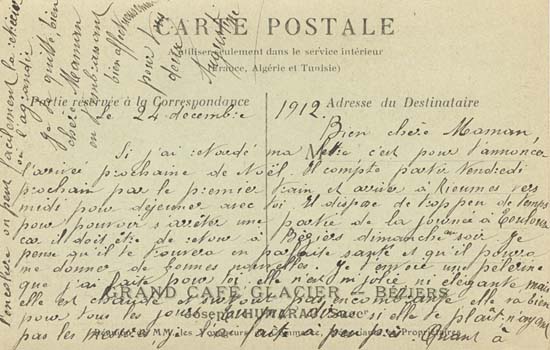 CARTE POSTALE
A utiliser seulement dans le service intérieur
(France, Algérie et Tunisie)
Partie réservée à la Correspondance
Adresse du Destinataire
le 24 décembre 1912.
Bien chère Maman,
Si j'ai retardé ma lettre c'est pour t'annoncer
l'arrivée prochaine de Noël. Il compte partir Vendredi
prochain par le premier train et arriver à Rieumes vers
midi pour déjeuner avec toi. Il dispose de trop peu de temps
pour pouvoir s'arrêter une partie de la journée à Toulouse
car il doit être de retour à Béziers dimanche au soir. Je
pense qu'il te trouvera en parfaite santé et qu'il pourra
me donner de bonnes nouvelles. Je t'envoie une pèlerine
que j'ai faite pour toi elle n'est ni jolie ni élégante mais
elle est chaude
pas
elle va bien
pour tous les jours
si elle te plaît n'ayant
pas les
fait à peu près. Quant à
GRAND CAFÉ GLACIER - BÉZIERS
Joseph
MM. les Voyageurs de Commerce,
Propriétaires
l'encolure on peut facilement la rétrécir
ou l'agrandir
Je te quitte, bien
chère Maman
en t'embrassant
bien
pour tous
deux